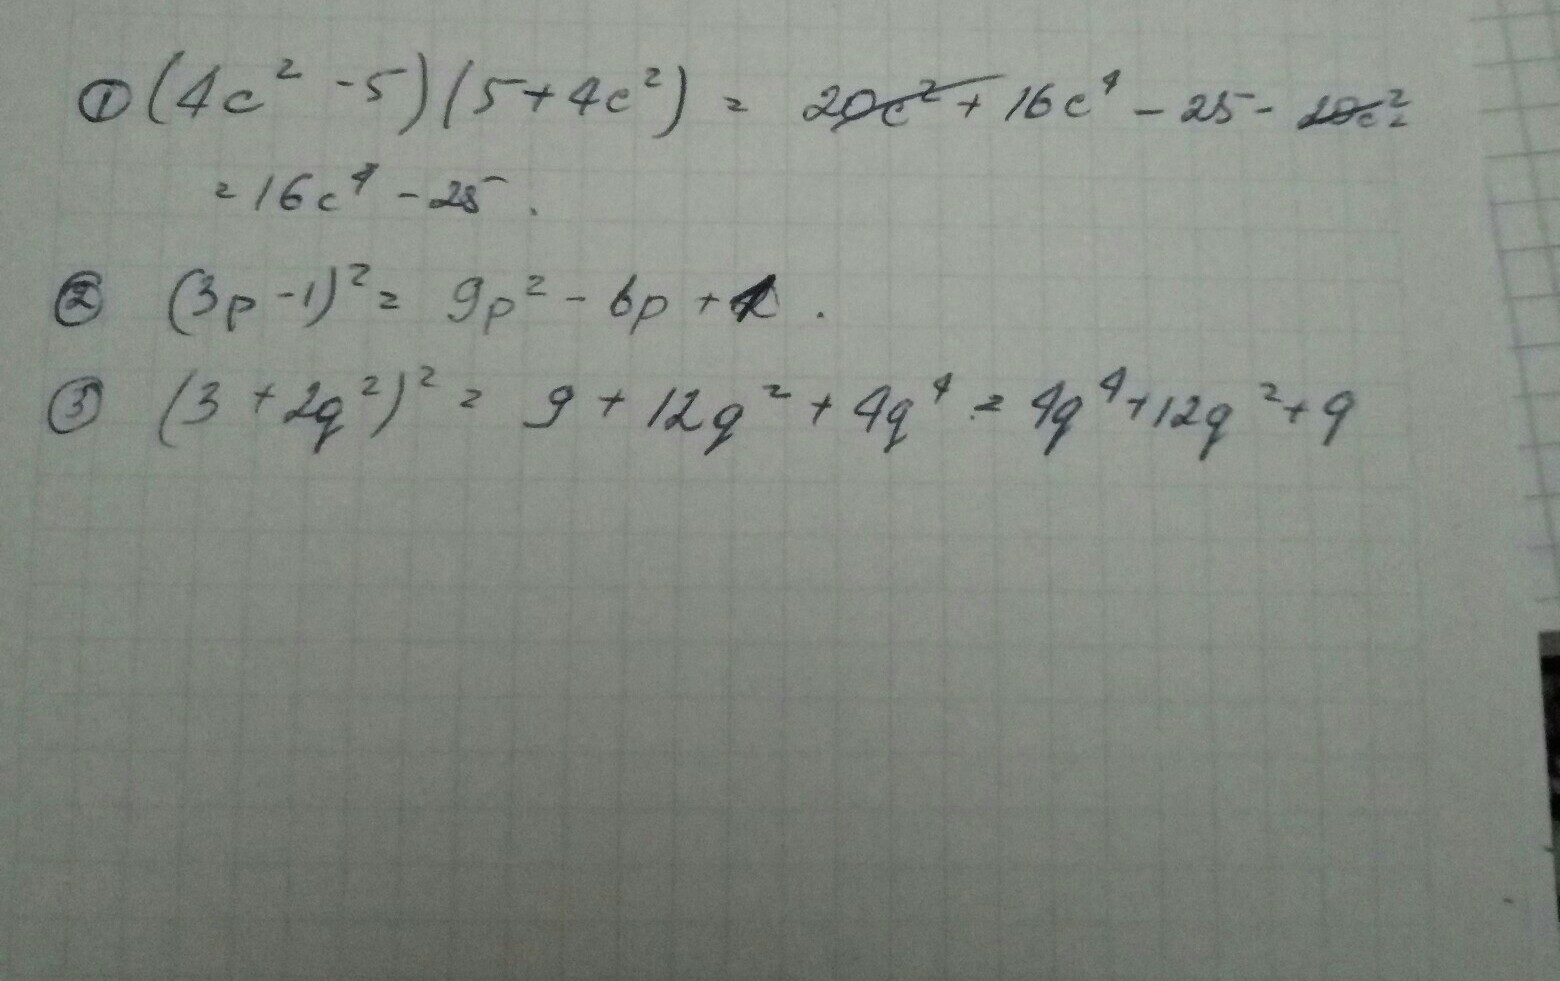 ① (4c² - 5)(5 + 4c²) = 20c² + 16c⁴ - 25 - 20c² =
= 16c⁴ - 25.
② (3p - 1)² = 9p² - 6p + 1.
③ (3 + 2q²)² = 9 + 12q² + 4q⁴ = 4q⁴ + 12q² + 9